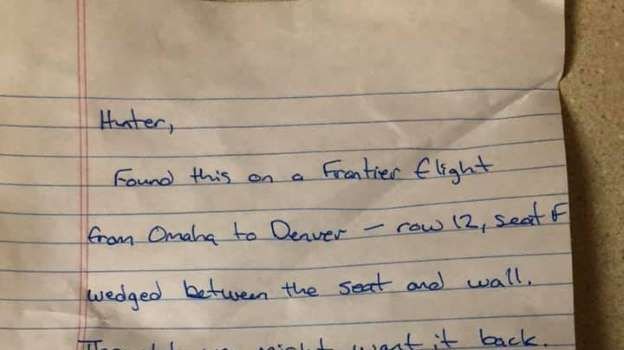 Hunter,
Found this on a Frontier flight
from Omaha to Denver – row 12, seat F
wedged between the seat and wall.
might want it back.